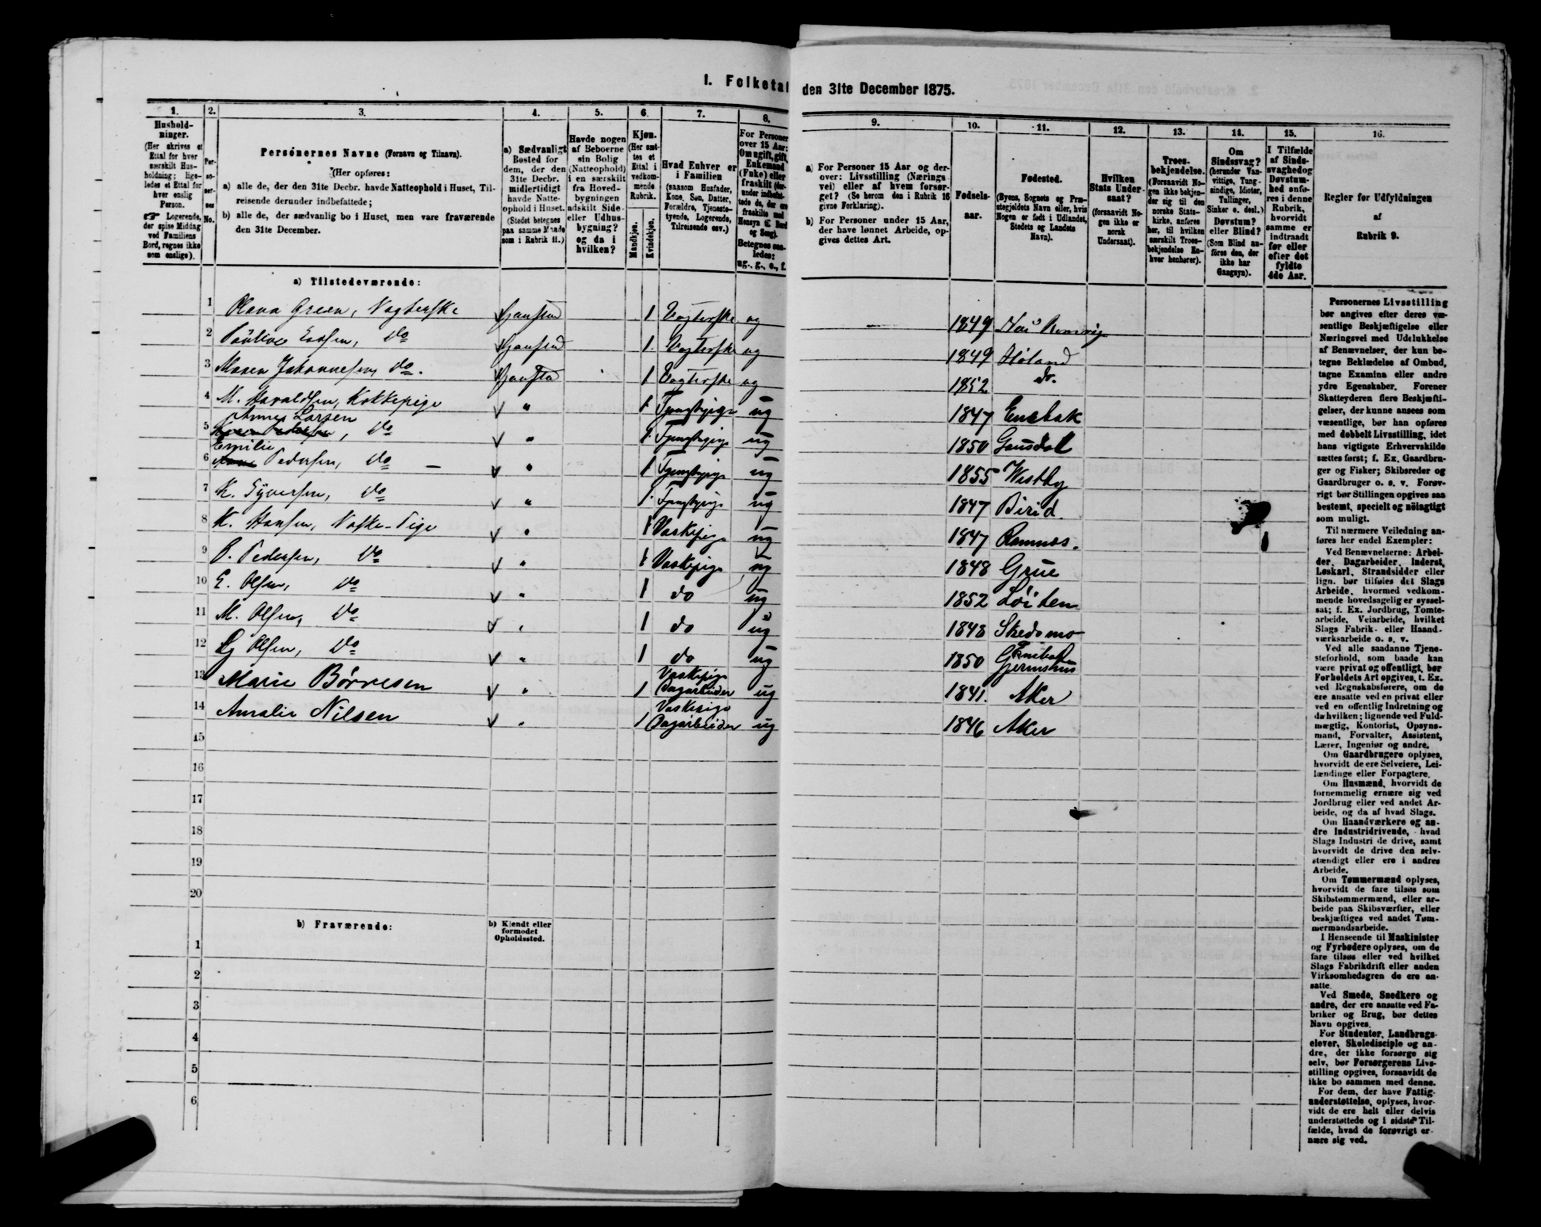 I. Folketal
den 31te December 1875.
1.
2.
3.
4.
5.
6.
7.
8.
9.
10.
11.
12.
13.
14.
15.
16.
Hushold-
ninger.
(Her skrives et
Ettal for hver
særskilt Hus-
holdning; lige-
ledes et Ettal for
hver enslig
Person.
☞ Logerende,
der spise Middag
ved Familiens
Bord, regnes ikke
som enslige).
Personernes Navne (Fornavn og Tilnavn).
(Her opføres:
a) alle de, der den 31te Decbr. havde Natteophold i Huset, Til-
reisende derunder indbefattede;
b) alle de, der sædvanlig bo i Huset, men vare fraværende
den 31te December.
a) Sædvanligt
Bosted for
dem, der den
31te Decbr.
midlertidigt
havde Natte-
ophold i Huset.
(Stedet betegnes
paa samme Maade
som i Rubrik 11.)
Havde nogen
af Beboerne
sin Bolig
(Natteophold)
i en særskilt
fra Hoved-
bygningen
adskilt Side-
eller Udhus-
bygning?
og da i
hvilken?
Kjøn.
(Her sæt-
tes et
Ettal i
vedkom-
mende
Rubrik.
Mandkjøn.
Kvindekjøn.
Hvad Enhver er
i Familien
(saasom Husfader,
Kone, Søn, Datter,
Forældre, Tjeneste-
tyende, Logerende,
Tilreisende osv.)
For Personer
over 15 Aar:
Om ugift, gift,
Enkemand
(Enke) eller
fraskilt
Betegnes saa-
ledes:
ug., g., e., f.
a) For Personer 15 Aar og der-
over: Livsstilling (Nærings-
vei) eller af hvem forsør-
get? (Se herom den i Rubrik 16
givne Forklaring).
b) For Personer under 15 Aar,
der have lønnet Arbeide, op-
gives dettes Art.
Fødsels-
aar.
Fødested.
(Byens, Sognets og Præ-
stegjeldets Navn eller, hvis
Nogen er født i Udlandet,
Stedets og Landets
Navn).
Hvilken
Stats Under-
saat?
(forsaavidt No-
gen ikke er
norsk
Undersaat).
Troes-
bekjendelse.
(Forsaavidt No-
gen ikke bekjen-
der sig til den
norske Stats-
kirke, anføres
her, til hvilken
særskilt Troes-
bekjendelse En-
hver henhører).
Om
Sindssvag?
(herunder Van-
vittige, Tung-
sindige, Idioter,
Tullinger,
Sinker o. desl.)
Døvstum?
eller Blind?
(Som Blind an-
føres den, der
ikke har
Gangsyn).
I Tilfælde
af Sinds-
svaghed og
Døvstum-
hed anfø-
res i denne
Rubrik,
hvorvidt
samme er
indtraadt
før eller
efter det
fyldte
4de Aar.
Regler for Udfyldningen
af
Rubrik 9.
a) Tilstedeværende:
1 Olava Green, Vogterske 1 Vogterske ug 1849
2 do 1 Vogterske ug 1849 Høland
3 Maren Johannesen, do. 1 Vogterske ug 1852 do.
4 M. Havaldsen, Kokkepige " 1 ug 1847 Enebak
Anne Larsen
5 do " 1 ug 1850 Gausdal
Emilie
6 Pedersen, do " 1 ug 1855 Vestby
7 K. Syversen, do " 1 ug 1847 Birid
8 K. Hansen, Vaske-Pige " 1 Vaskepige ug 1847 Ramnæs.
9 P. Pedersen, do " 1 Vaskepige ug 1848 Grue
10 E. Olsen, do " 1 do ug 1852 Løiten
11 M. Olsen, do " 1 do ug 1848 Skedsmo
12 Olsen, do " 1 do ug 1850
13 Marie Börresen " 1 Vaskepige Dagarbeider ug 1841. Aker
14 Amalie Nilsen " 1 Vaskepige Dagarbeider ug 1846 Aker
15
16
17
18
19
20
b) Fraværende:
b) Kjendt eller
formodet
Opholdssted.
1
2
3
4
5
6
Personernes Livsstilling
bør angives efter deres væ-
sentlige Beskjæftigelse eller
Næringsvei med Udelukkelse
af Benævnelser, der kun be-
tegne Beklædelse af Ombud,
tagne Examina eller andre
ydre Egenskaber. Forener
Skatteyderen flere Beskjæfti-
gelser, der kunne ansees som
væsentlige, bør han opføres
med dobbelt Livsstilling, idet
hans vigtigste Erhvervskilde
sættes først; f. Ex. Gaardbru-
ger og Fisker; Skibsreder og
Gaardbruger o. s. v. Forøv-
rigt bør Stillingen opgives saa
bestemt, specielt og nöiagtigt
som muligt.
Til nærmere Veiledning an-
føres her endel Exempler:
Ved Benævnelserne: Arbei-
der, Dagarbeider, Inderst,
Løskarl, Strandsidder eller
lign. bør tilføies det Slags
Arbeide, hvormed vedkom-
mende hovedsagelig er syssel-
sat; f. Ex. Jordbrug, Tomte-
arbeide, Veiarbeide, hvilket
Slags Fabrik- eller Haand-
værksarbeide o. s. v.
Ved alle saadanne Tjene-
steforhold, som baade kan
være privat og offentligt, bør
Forholdets Art opgives, t. Ex.
ved Regnskabsførere, om de
ere ansatte ved en privat eller
ved en offentlig Indretning og
da hvilken; lignende ved Fuld-
mægtig, Kontorist, Opsyns-
mand, Forvalter, Assistent,
Lærer, Ingeniør og andre.
Om Gaardbrugere oplyses,
hvorvidt de ere Selveiere, Lei-
lændinge eller Forpagtere.
Om Husmænd, hvorvidt de
fornemmelig ernære sig ved
Jordbrug eller ved andet Ar-
beide, og da af hvad Slags.
Om Haandværkere og an-
dre Industridrivende, hvad
Slags Industri de drive, samt
hvorvidt de drive den selv-
stændigt eller ere i andres
Arbeide.
Om Tømmermænd oplyses,
hvorvidt de fare tilsøs som
Skibstømmermænd, eller ar-
beide paa Skibsværfter, eller
beskjæftiges ved andet Tøm-
mermandsarbeide.
I Henseende til Maskinister
og Fyrbødere oplyses, om de
fare tilsøs eller ved hvilket
Slags Fabrikdrift eller anden
Virksomhedsgren de ere an-
satte.
Ved Smede, Snedkere og
andre, der ere ansatte ved Fa-
briker og Brug, bør dettes
Navn opgives.
For Studenter, Landbrugs-
elever, Skoledisciple og an-
dre, der ikke forsørge sig
selv, bør Forsørgerens Livs-
stilling opgives, forsaavidt de
ikke bo sammen med denne.
For dem, der have Fattig-
understøttelse, oplyses, hvor-
vidt de ere helt eller delvis
understøttede og i sidste Til-
fælde, hvad de forøvrigt er-
nære sig ved.